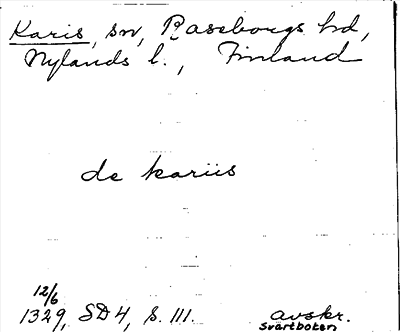 Karis, sn, Raseborgs hd,
Nylands l., Finland
de kariis
12/6
1329, SD 4, s. 111. avskr.
Svartboken